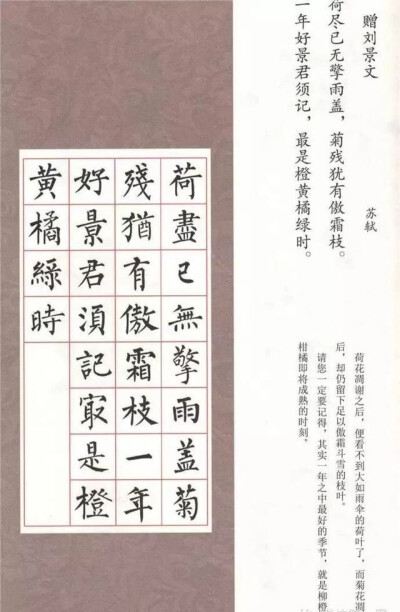 赠刘景文
苏轼
荷尽已无擎雨盖，菊残犹有傲霜枝。
一年好景君须记，最是橙黄橘绿时。
荷花凋谢之后，便看不到大如雨伞的荷叶了，而菊花凋
后，却仍留下足以傲霜斗雪的枝叶。
请您一定要记得，其实一年之中最好的季节，就是柳橙
柑橘即将成熟的时刻。
荷盡已無擎雨盖菊
殘猶有傲霜枝一年
好景君須記㝡是橙
黄橘綠時